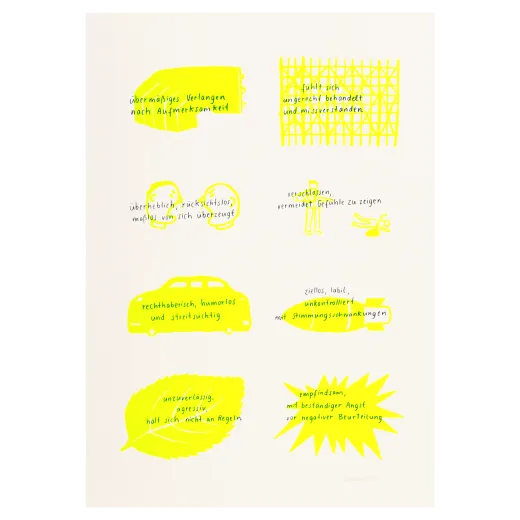 übermäßiges Verlangen
nach Aufmerksamkeit
fühlt sich
ungerecht behandelt
und missverstanden
überheblich, rücksichtslos,
maßlos von sich überzeugt
verschlossen,
vermeidet Gefühle zu zeigen
rechthaberisch, humorlos
und streitsüchtig
ziellos, labil,
unkontrolliert
mit Stimmungsschwankungen
unzuverlässig,
agressiv,
hält sich nicht an Regeln
empfindsam,
mit beständiger Angst
vor negativer Beurteilung